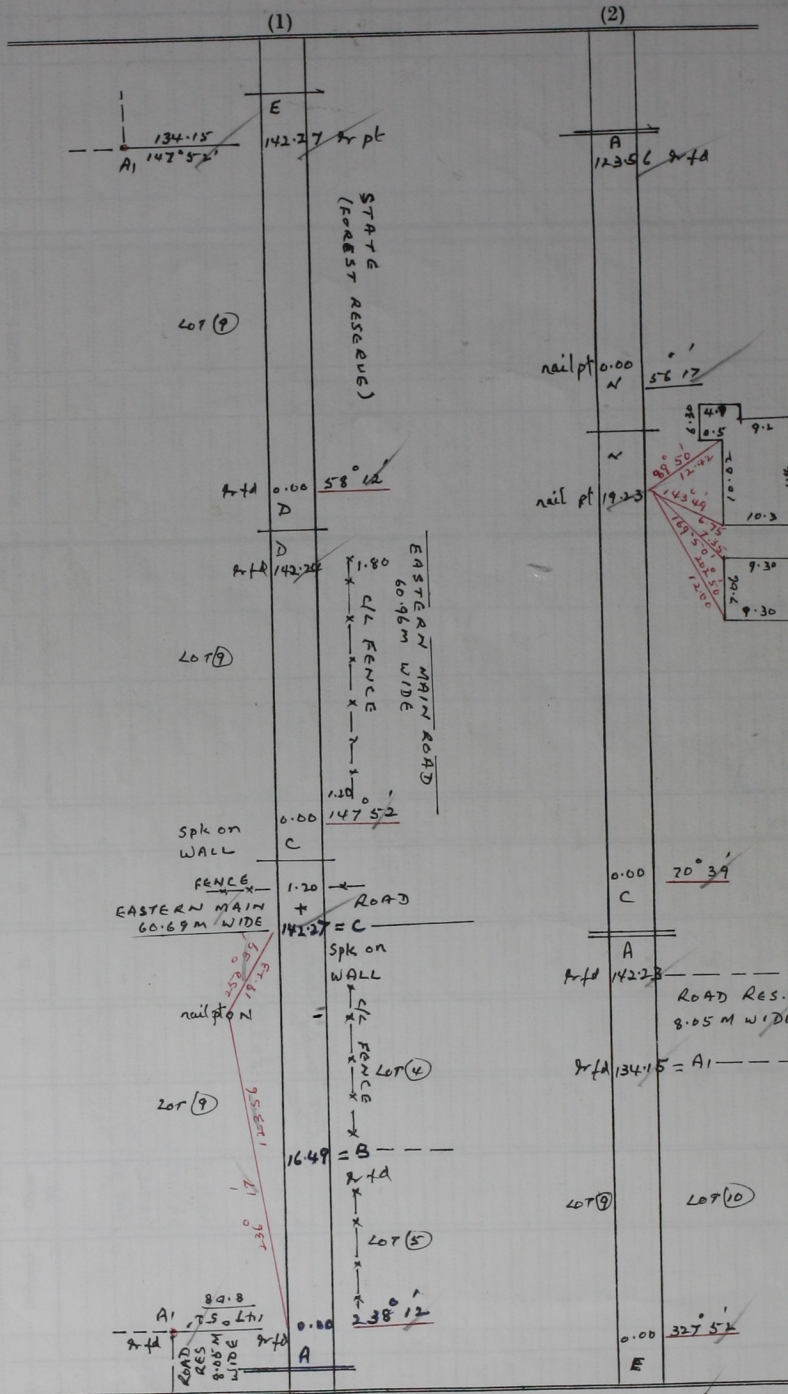 (1)
E
134.15
147°52'
A1
142.27 Ir pt
STATE
(FOREST RESERVE)
LOT (9)
Ir fd 0.00 58° 12'
D
D
Ir fd 142.24
1.80
C/L FENCE
EASTERN MAIN ROAD
60.96M WIDE
LOT (9)
1.20
0.00 147° 52'
Spk on
WALL
C
FENCE 1.20
EASTERN MAIN + ROAD
60.69M WIDE 142.27 = C
Spk on
WALL
nail pt N
C/L FENCE
LOT (4)
LOT (9)
123.56
16.49 = B
Ir fd
LOT (5)
A1
8.08
147° 52'
Ir fd
Ir fd 0.00 238° 12'
ROAD
RES
8.05M
WIDE
A
(2)
A
123.56 Ir fd
nail pt 0.00 56° 17'
N
4.9
0.5
9.2
N
nail pt 19.23
89° 50'
12.42
10.02
143° 49'
6.75
10.3
7.35
169° 50'
202° 50'
12.00
9.30
7.20
9.30
0.00 70° 39'
C
A
Ir fd 142.23
ROAD RES.
8.05 M WIDE
Ir fd 134.15 = A1
LOT (9)
LOT (10)
0.00 327° 52'
E